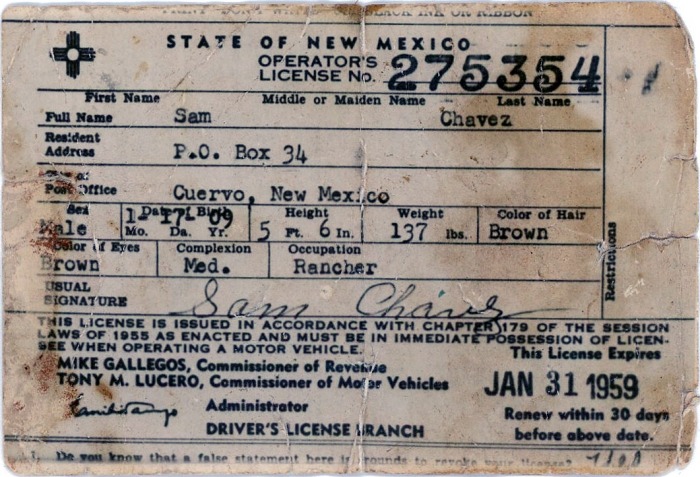 STATE OF NEW MEXICO
OPERATOR'S
LICENSE No. 275354
First Name Middle or Maiden Name Last Name
Full Name Sam Chavez
Resident
Address P.O. Box 34
Post Office Cuervo, New Mexico
Sex Date of Birth Height Weight Color of Hair
Male 1-17-09 5 Ft. 6 In. 137 lbs. Brown
Mo. Da. Yr.
Color of Eyes Complexion Occupation
Brown Med. Rancher
Restrictions
USUAL
SIGNATURE Sam Chavez
THIS LICENSE IS ISSUED IN ACCORDANCE WITH CHAPTER 179 OF THE SESSION
LAWS OF 1955 AS ENACTED AND MUST BE IN IMMEDIATE POSSESSION OF LICEN-
SEE WHEN OPERATING A MOTOR VEHICLE.
This License Expires
MIKE GALLEGOS, Commissioner of Revenue
TONY M. LUCERO, Commissioner of Motor Vehicles
JAN 31 1959
Administrator
Renew within 30 days
DRIVER'S LICENSE BRANCH
before above date.
1. Do you know that a false statement here is grounds to revoke your license?